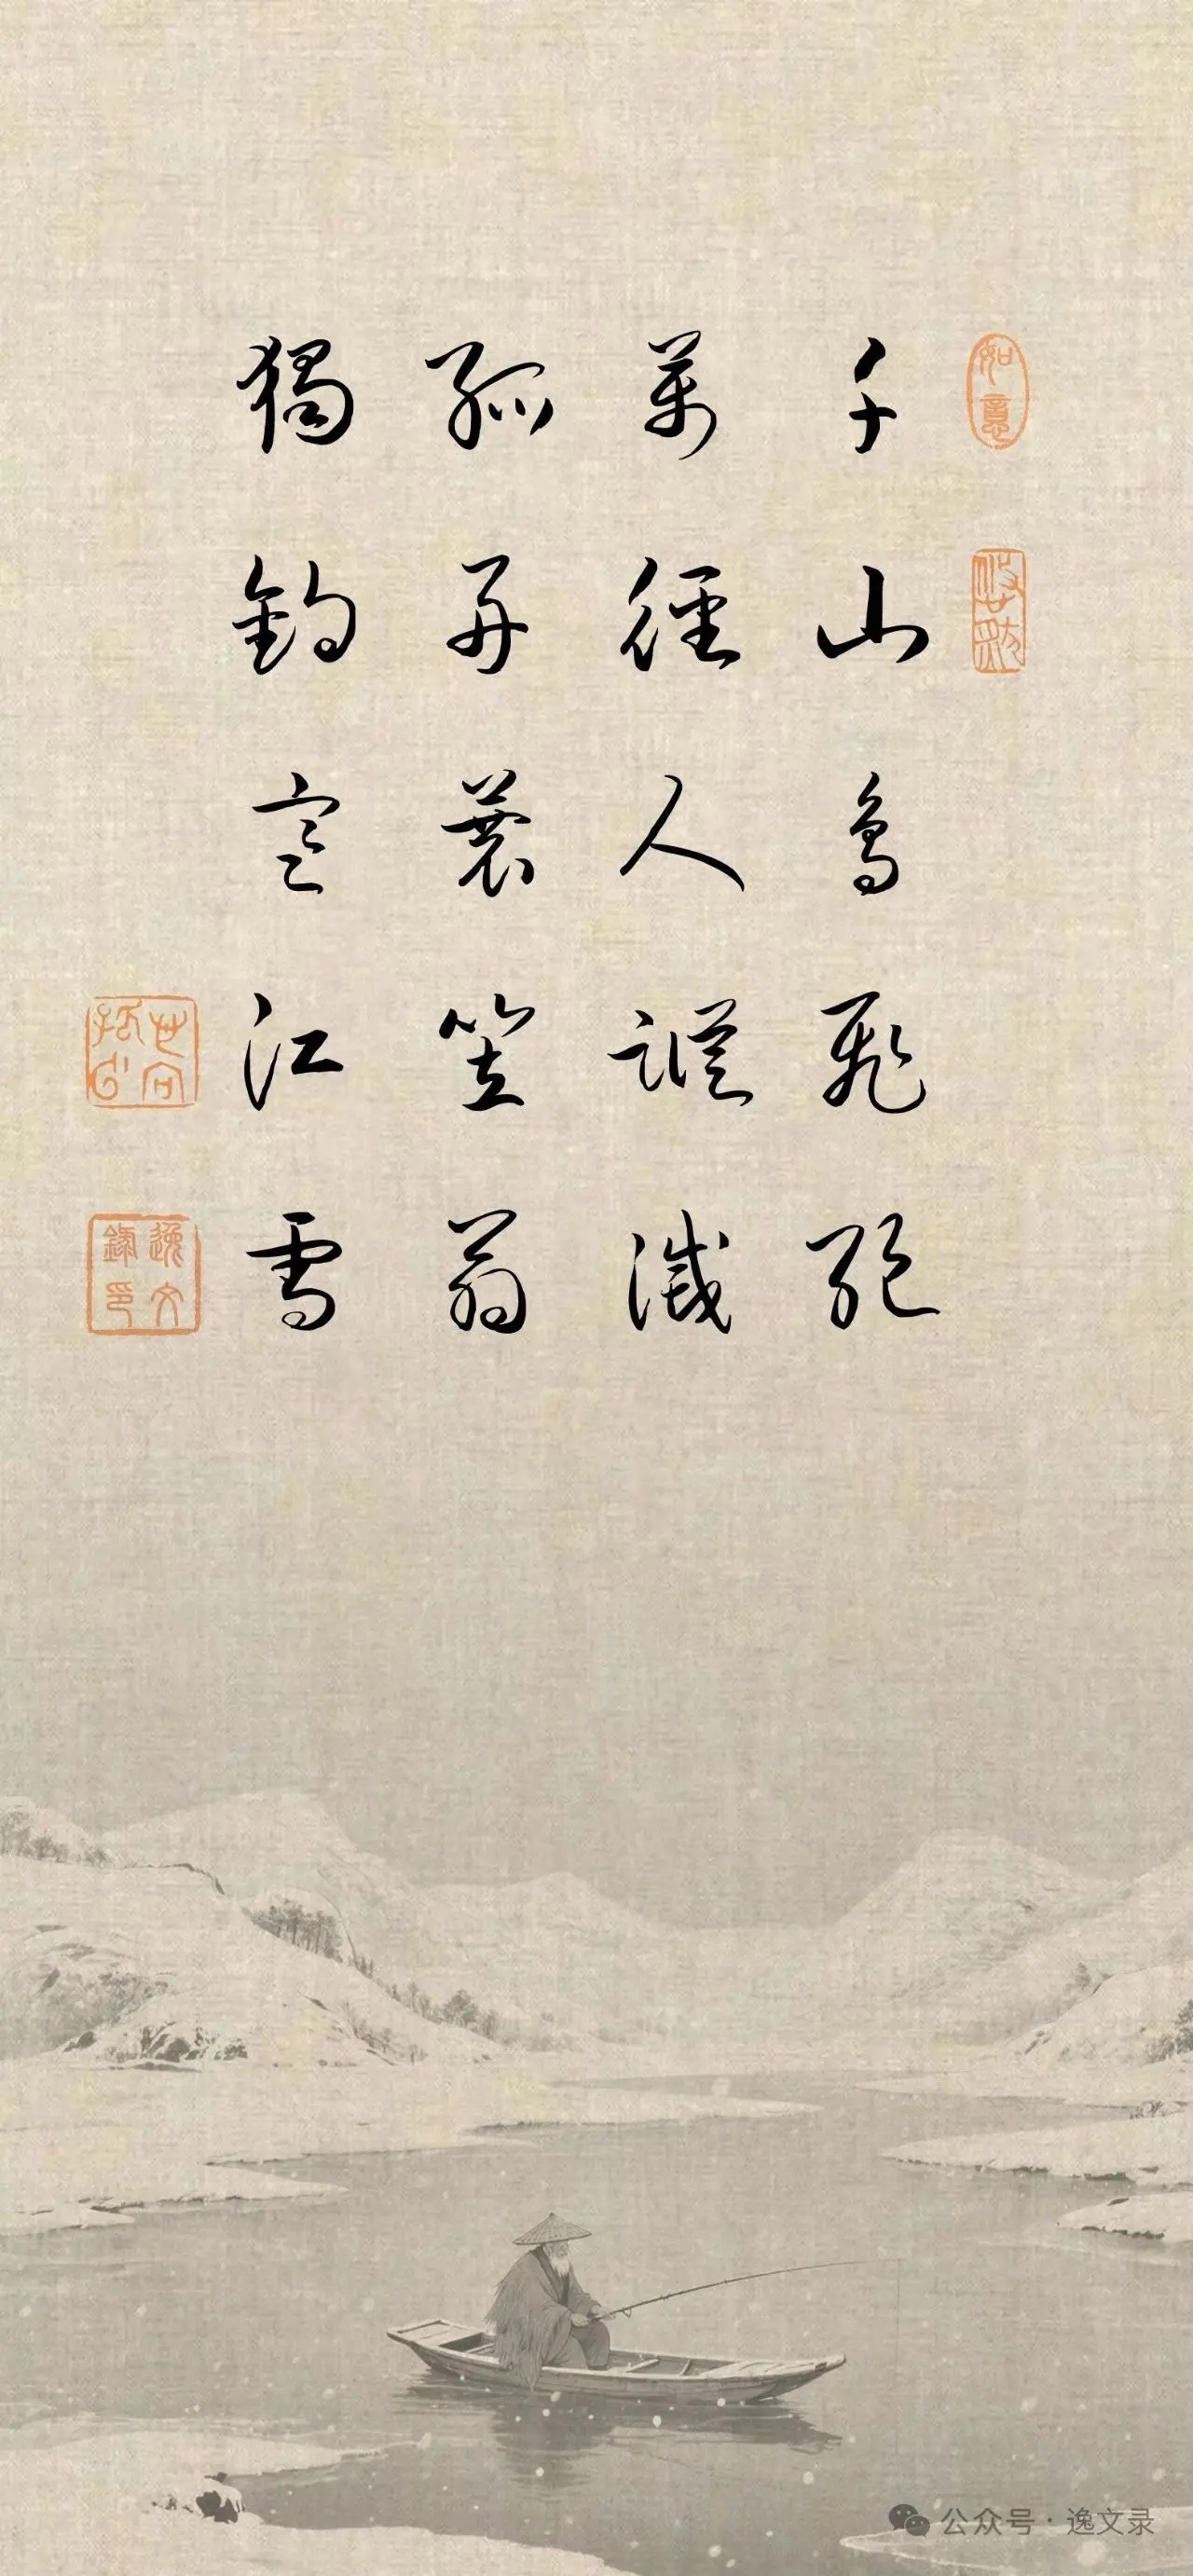 千山鳥飛絕
萬徑人蹤滅
孤舟蓑笠翁
獨釣寒江雪
如意
逸文錄印
公众号·逸文录